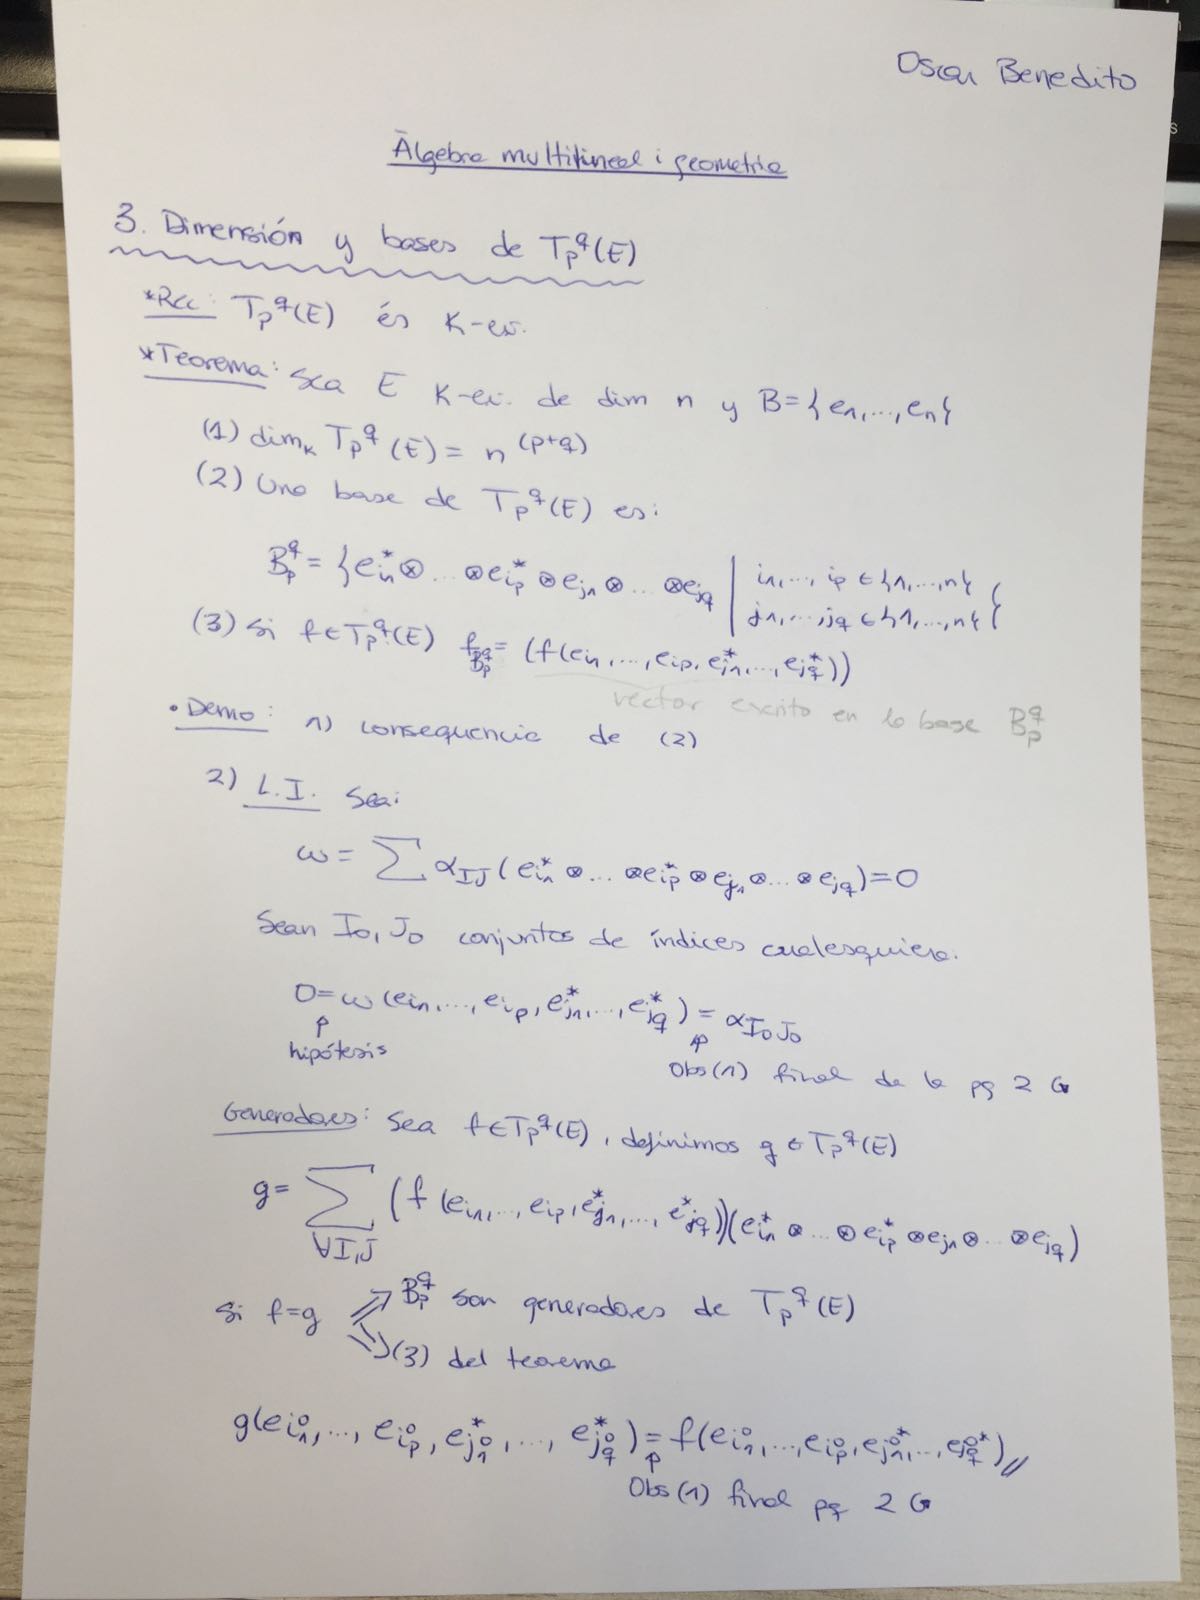 Oscar Benedito
Àlgebra multilineal i geometria
3. Dimensión y bases de T_p^q(E)
*Rec: T_p^q(E) és K-ev.
*Teorema: Sea E K-ev. de dim n y B={e_1,...,e_n}
(1) dim_K T_p^q(E) = n^(p+q)
(2) Una base de T_p^q(E) es:
B_p^q = {e_{i1}^* ⊗ ... ⊗ e_{ip}^* ⊗ e_{j1} ⊗ ... ⊗ e_{jq} | i1,..., ip ∈ {1,...,n}
j1,...,jq ∈ {1,...,n}}
(3) Si f ∈ T_p^q(E) f_{B_p^q} = (f(e_{i1},...,e_{ip}, e_{j1}^*,...,e_{jq}^*))
vector escrito en la base B_p^q
• Demo: 1) consequencia de (2)
2) L.I. Sea:
ω = ∑ α_{IJ} (e_{i1}^* ⊗ ... ⊗ e_{ip}^* ⊗ e_{j1} ⊗ ... ⊗ e_{jq}) = 0
Sean I_0, J_0 conjuntos de índices cualesquiera.
0 = ω(e_{i1},..., e_{ip}, e_{j1}^*,..., e_{jq}^*) = α_{I_0 J_0}
↑ hipótesis
↑ Obs(1) final de la pg 2 G
Generadores: Sea f ∈ T_p^q(E), definimos g ∈ T_p^q(E)
g = ∑_{∀I,J} (f(e_{i1},..., e_{ip}, e_{j1}^*,..., e_{jq}^*))(e_{i1}^* ⊗ ... ⊗ e_{ip}^* ⊗ e_{j1} ⊗ ... ⊗ e_{jq})
Si f=g ⇒ B_p^q son generadores de T_p^q(E)
⇒ (3) del teorema
g(e_{i_1^0},..., e_{i_p^0}, e_{j_1^0}^*,..., e_{j_q^0}^*) = f(e_{i_1^0},...,e_{i_p^0}, e_{j_1^0}^*,..., e_{j_q^0}^*)//
↑ Obs(1) final pg 2 G